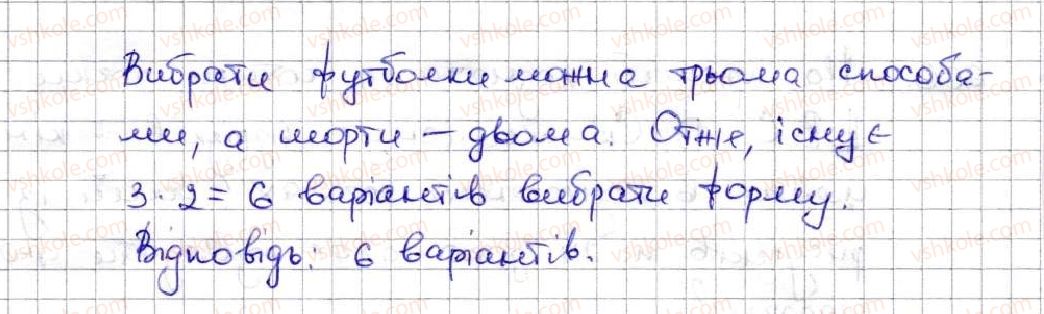 Вибрати футболки можна трьома способа-
ми, а шорти – двома. Отже, існує
3 · 2 = 6 варіантів вибрати форму.
Відповідь: 6 варіантів.